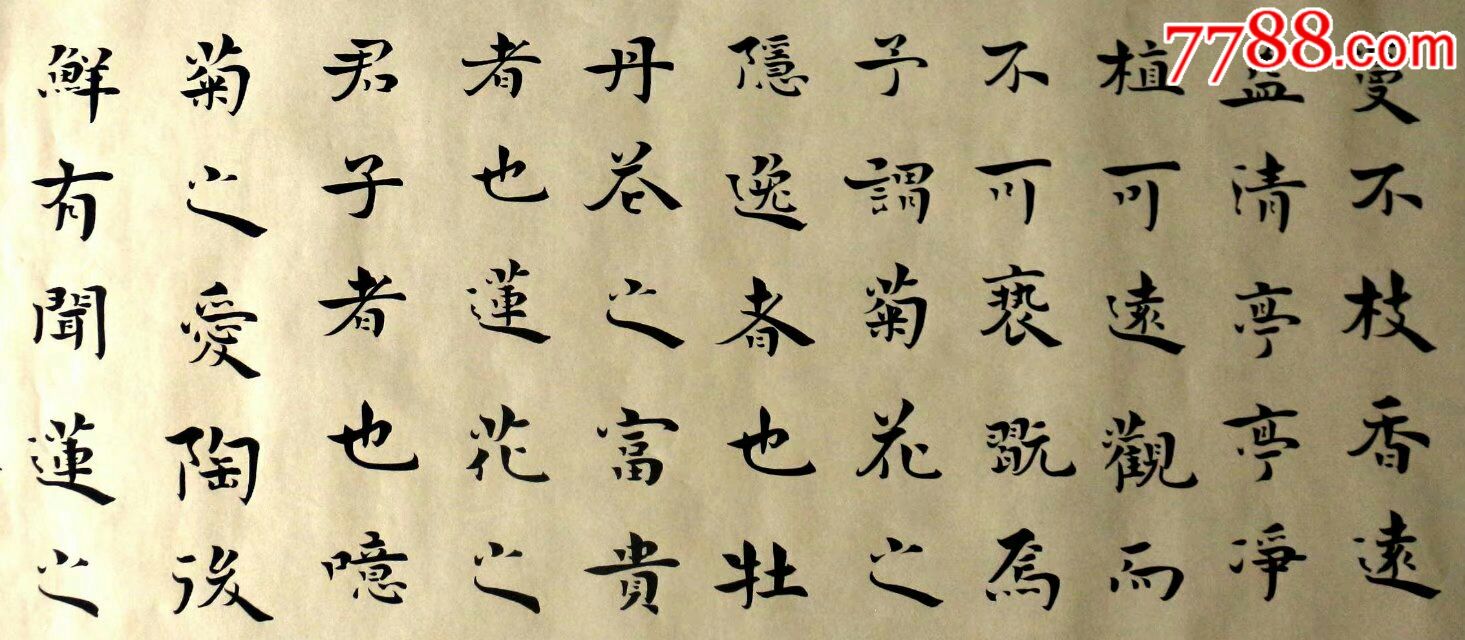 7788.com
蔓不枝香遠
益清亭亭淨
植可遠觀而
不可褻翫焉
予謂菊花之
隱逸者也牡
丹花之富貴
者也蓮花之
君子者也噫
菊之愛陶後
鮮有聞蓮之